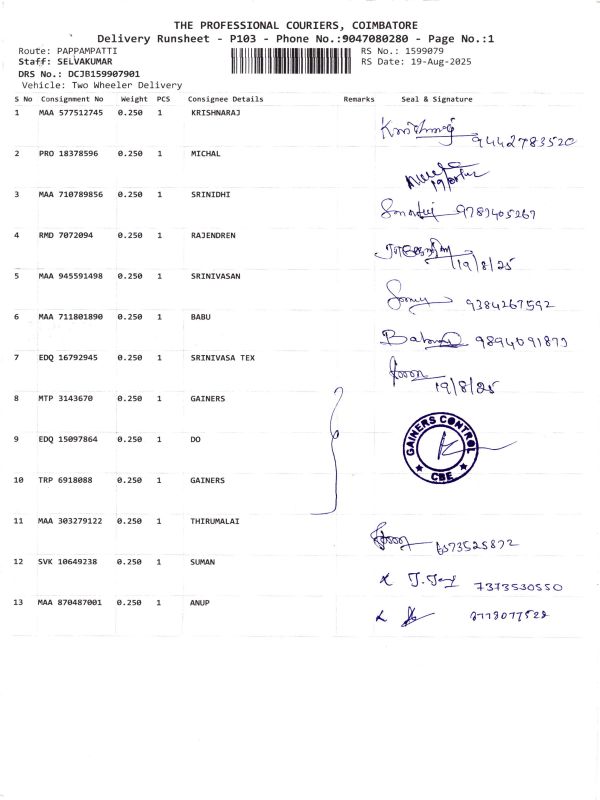 THE PROFESSIONAL COURIERS, COIMBATORE
Delivery Runsheet - P103 - Phone No.:9047080280 - Page No.:1
Route: PAPPAMPATTI RS No.: 1599079
Staff: SELVAKUMAR RS Date: 19-Aug-2025
DRS No.: DCJB159907901
Vehicle: Two Wheeler Delivery
S No Consignment No Weight PCS Consignee Details Remarks Seal & Signature
1 MAA 577512745 0.250 1 KRISHNARAJ
9442783520
2 PRO 18378596 0.250 1 MICHAL
3 MAA 710789856 0.250 1 SRINIDHI
9789405267
4 RMD 7072094 0.250 1 RAJENDREN
19/8/25
5 MAA 945591498 0.250 1 SRINIVASAN
9384267592
6 MAA 711801890 0.250 1 BABU
7 EDQ 16792945 0.250 1 SRINIVASA TEX
19/8/25
8 MTP 3143670 0.250 1 GAINERS
GAINERS CONTROL
CBE
9 EDQ 15097864 0.250 1 DO
10 TRP 6918088 0.250 1 GAINERS
11 MAA 303279122 0.250 1 THIRUMALAI
12 SVK 10649238 0.250 1 SUMAN
7373530550
13 MAA 870487001 0.250 1 ANUP